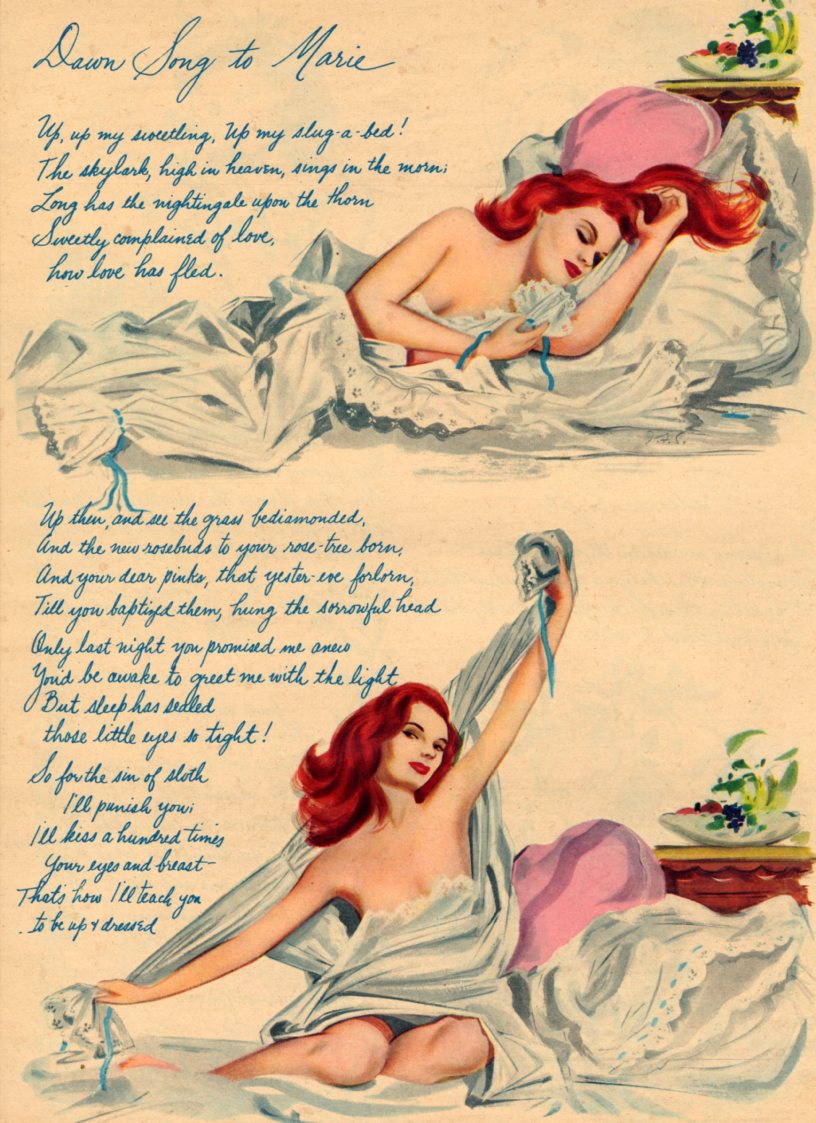 Dawn Song to Marie
Up, up my sweetling, Up my slug-a-bed!
The skylark, high in heaven, sings in the morn;
Long has the nightingale upon the thorn
Sweetly complained of love,
how love has fled.
Up then, and see the grass bediamonded,
And the new rosebuds to your rose-tree born,
And your dear pinks, that yester-eve forlorn,
Till you baptized them, hung the sorrowful head
Only last night you promised me anew
You'd be awake to greet me with the light
But sleep has sealed
those little eyes so tight!
So for the sin of sloth
I'll punish you;
I'll kiss a hundred times
Your eyes and breast-
That's how I'll teach you
to be up & dressed